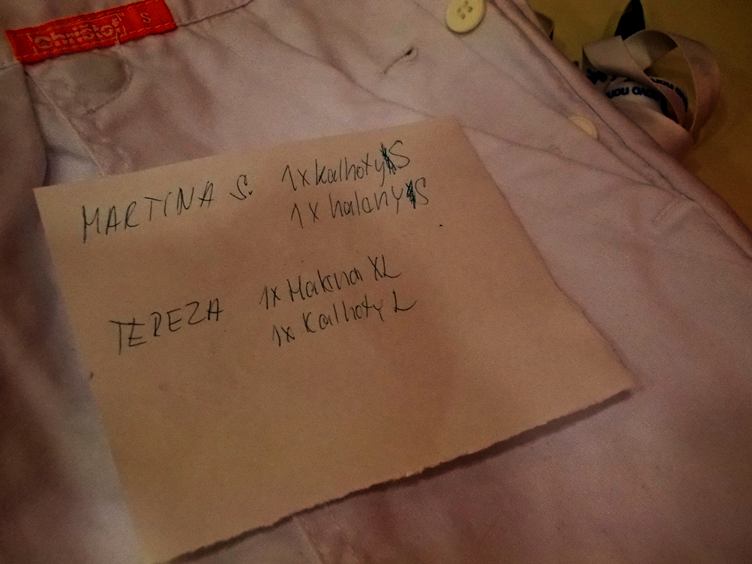 Christo
S
MARTINA S. 1x kalhoty S
1x halany S
TEREZA 1x Halena XL
1x Kalhoty L